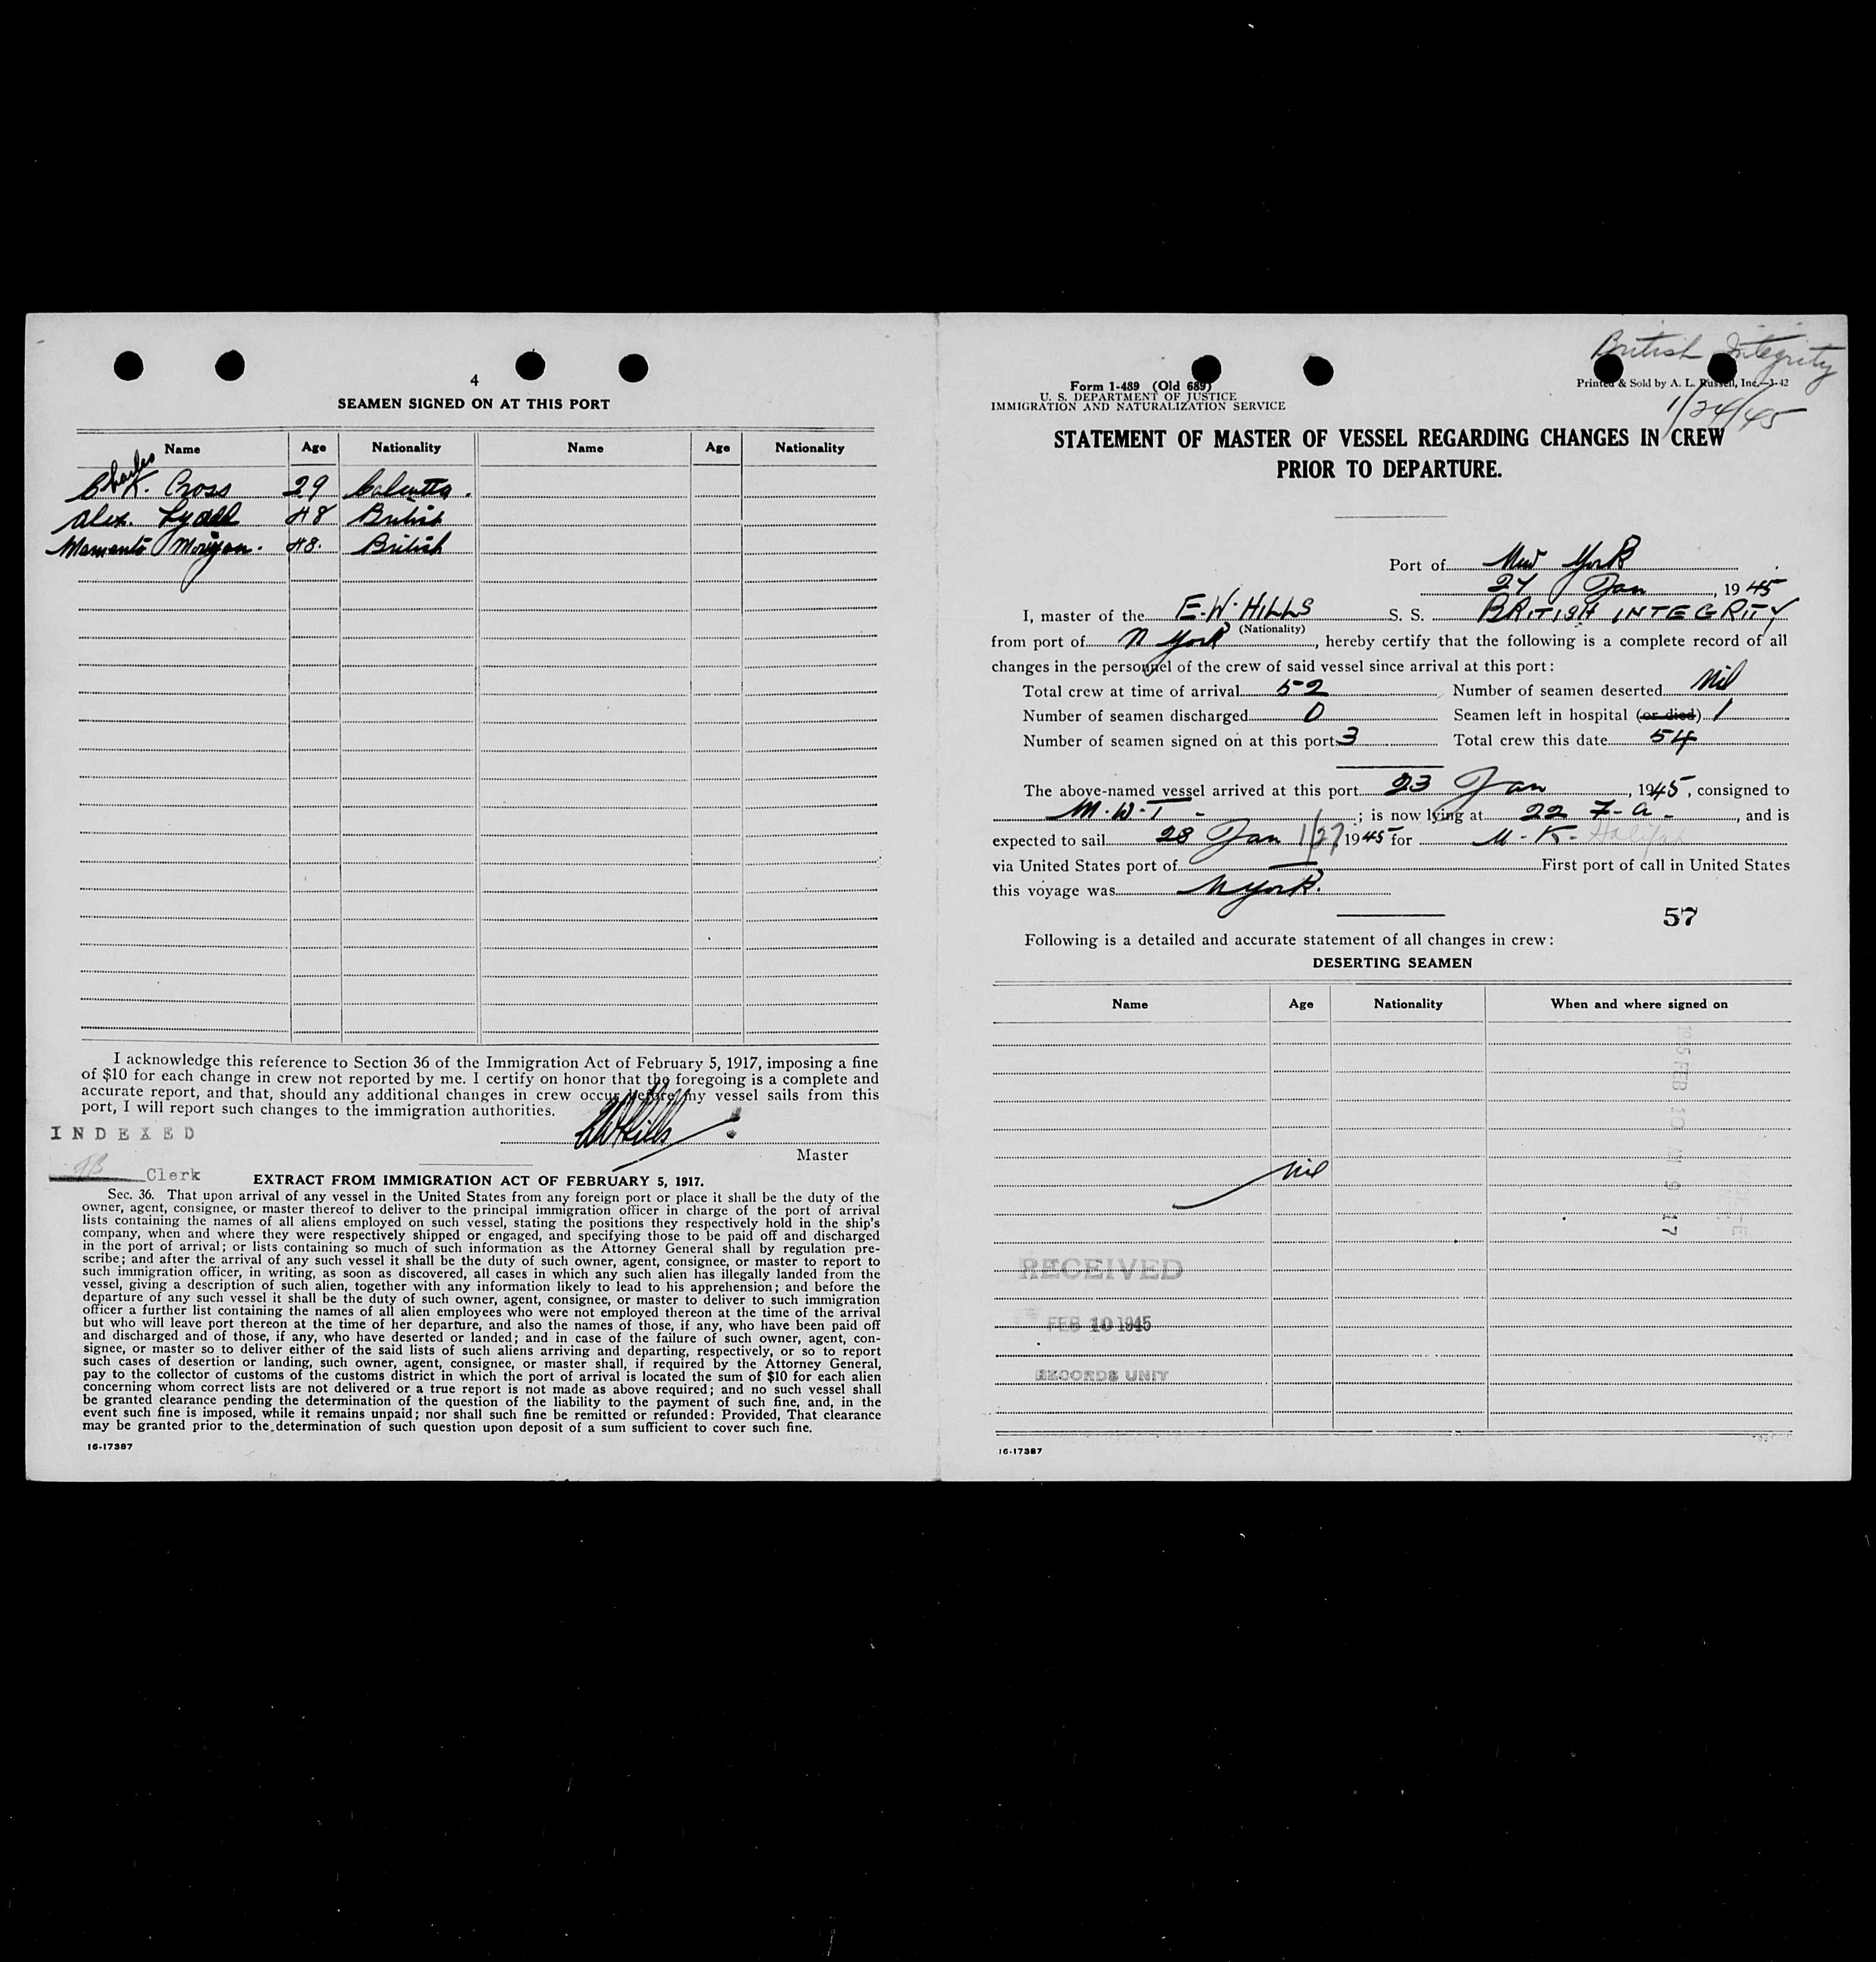 4
SEAMEN SIGNED ON AT THIS PORT
Name Age Nationality Name Age Nationality
Charles K. Cross 29 Calcutta.
Alex. Lyall 48 British
Morgan. 48. British
I acknowledge this reference to Section 36 of the Immigration Act of February 5, 1917, imposing a fine
of $10 for each change in crew not reported by me. I certify on honor that the foregoing is a complete and
accurate report, and that, should any additional changes in crew occur before my vessel sails from this
port, I will report such changes to the immigration authorities.
INDEXED
EWHills
Master
Clerk
EXTRACT FROM IMMIGRATION ACT OF FEBRUARY 5, 1917.
Sec. 36. That upon arrival of any vessel in the United States from any foreign port or place it shall be the duty of the
owner, agent, consignee, or master thereof to deliver to the principal immigration officer in charge of the port of arrival
lists containing the names of all aliens employed on such vessel, stating the positions they respectively hold in the ship's
company, when and where they were respectively shipped or engaged, and specifying those to be paid off and discharged
in the port of arrival; or lists containing so much of such information as the Attorney General shall by regulation pre-
scribe; and after the arrival of any such vessel it shall be the duty of such owner, agent, consignee, or master to report to
such immigration officer, in writing, as soon as discovered, all cases in which any such alien has illegally landed from the
vessel, giving a description of such alien, together with any information likely to lead to his apprehension; and before the
departure of any such vessel it shall be the duty of such owner, agent, consignee, or master to deliver to such immigration
officer a further list containing the names of all alien employees who were not employed thereon at the time of the arrival
but who will leave port thereon at the time of her departure, and also the names of those, if any, who have been paid off
and discharged and of those, if any, who have deserted or landed; and in case of the failure of such owner, agent, con-
signee, or master so to deliver either of the said lists of such aliens arriving and departing, respectively, or so to report
such cases of desertion or landing, such owner, agent, consignee, or master shall, if required by the Attorney General,
pay to the collector of customs of the customs district in which the port of arrival is located the sum of $10 for each alien
concerning whom correct lists are not delivered or a true report is not made as above required; and no such vessel shall
be granted clearance pending the determination of the question of the liability to the payment of such fine, and, in the
event such fine is imposed, while it remains unpaid; nor shall such fine be remitted or refunded: Provided, That clearance
may be granted prior to the determination of such question upon deposit of a sum sufficient to cover such fine.
16-17387
British Integrity
1/24/45
Form 1-489 (Old 689)
U. S. DEPARTMENT OF JUSTICE
IMMIGRATION AND NATURALIZATION SERVICE
Printed & Sold by A. L. Russell, Inc.—1-42
STATEMENT OF MASTER OF VESSEL REGARDING CHANGES IN CREW
PRIOR TO DEPARTURE.
Port of New York
27 Jan, 1945
I, master of the E.W. HILLS S. S. BRITISH INTEGRITY
(Nationality)
from port of N York, hereby certify that the following is a complete record of all
changes in the personnel of the crew of said vessel since arrival at this port:
Total crew at time of arrival 52 Number of seamen deserted Nil
Number of seamen discharged 0 Seamen left in hospital (or died) 1
Number of seamen signed on at this port 3 Total crew this date 54
The above-named vessel arrived at this port 23 Jan, 1945, consigned to
M.W.T-; is now lying at 22 F-A-, and is
expected to sail 28 Jan 1/27, 1945 for U-K- Halifax
via United States port of — First port of call in United States
this voyage was N York.
57
Following is a detailed and accurate statement of all changes in crew:
DESERTING SEAMEN
Name Age Nationality When and where signed on
Nil
RECEIVED
FEB 10 1945
RECORDS UNIT
FEB 10 AM 9 17
16-17387